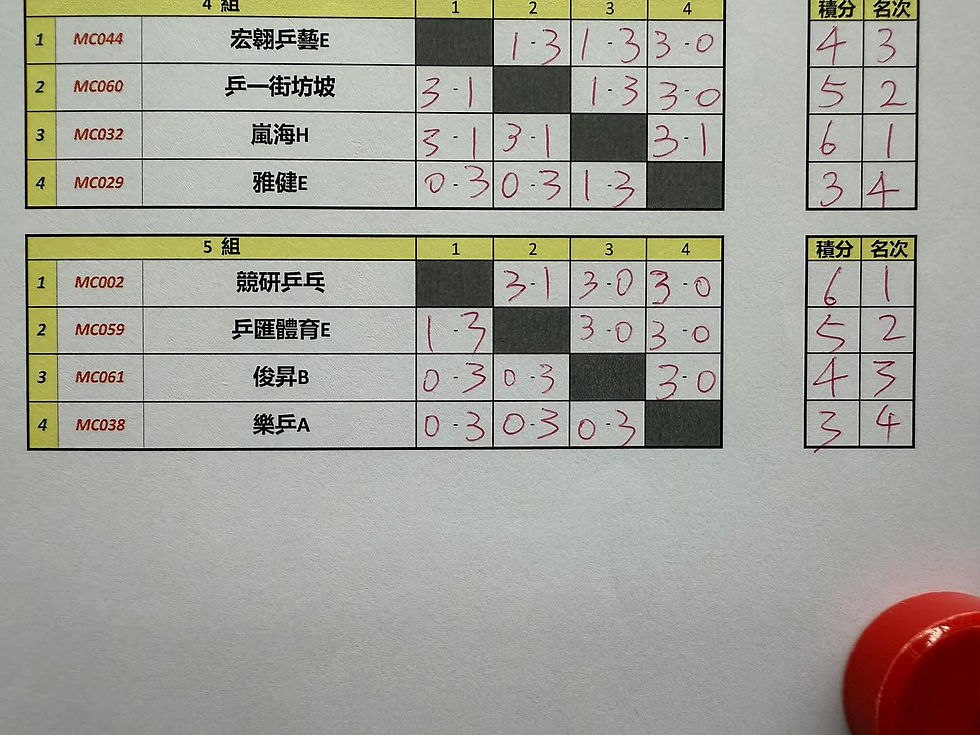 4 組 1 2 3 4 積分 名次
1 MC044 宏翱乒藝E 1-3 1-3 3-0 4 3
2 MC060 乒一街坊坡 3-1 1-3 3-0 5 2
3 MC032 嵐海H 3-1 3-1 3-1 6 1
4 MC029 雅健E 0-3 0-3 1-3 3 4
5 組 1 2 3 4 積分 名次
1 MC002 競研乒乓 3-1 3-0 3-0 6 1
2 MC059 乒匯體育E 1-3 3-0 3-0 5 2
3 MC061 俊昇B 0-3 0-3 3-0 4 3
4 MC038 樂乒A 0-3 0-3 0-3 3 4